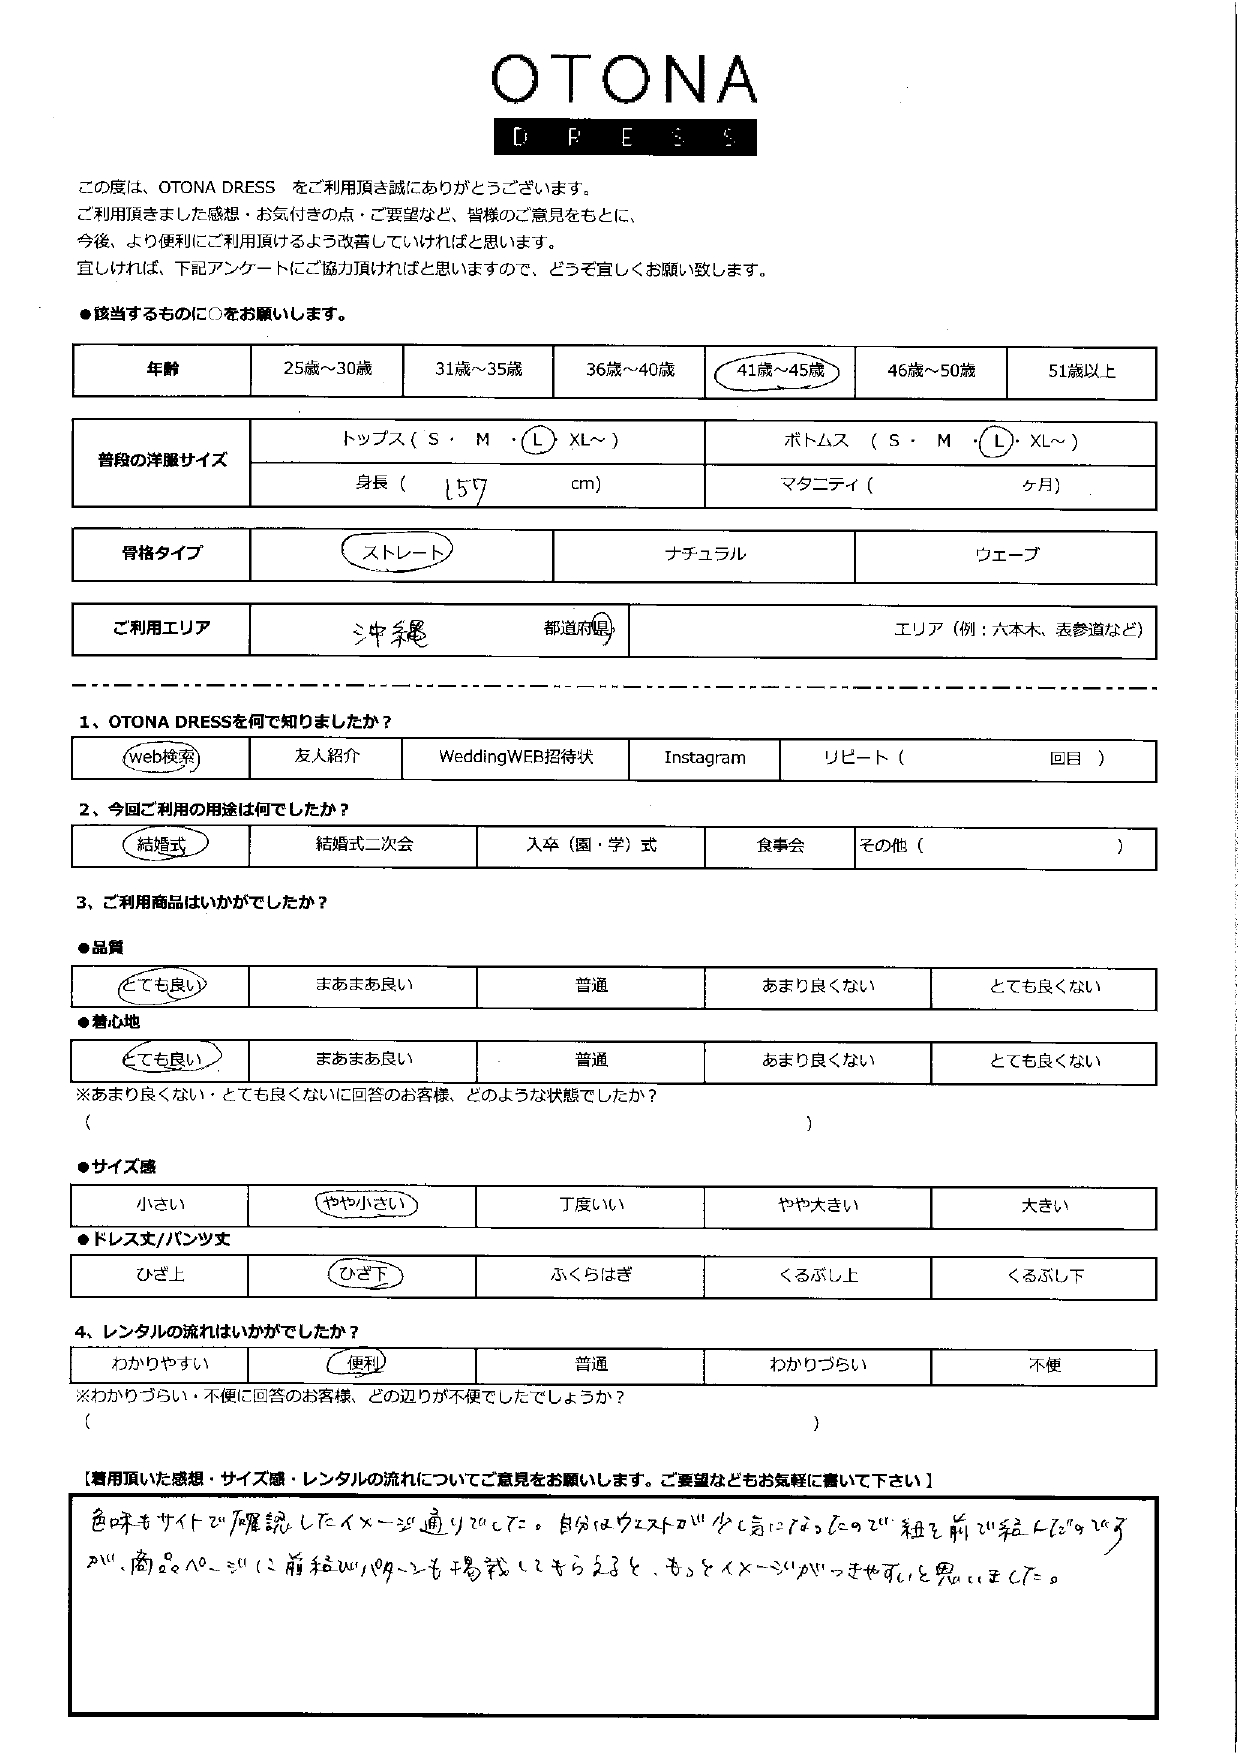 OTONA
DRESS
この度は、OTONA DRESS　をご利用頂き誠にありがとうございます。
ご利用頂きました感想・お気付きの点・ご要望など、皆様のご意見をもとに、
今後、より便利にご利用頂けるよう改善していければと思います。
宜しければ、下記アンケートにご協力頂ければと思いますので、どうぞ宜しくお願い致します。
●該当するものに○をお願いします。
年齢 25歳～30歳 31歳～35歳 36歳～40歳 41歳～45歳 46歳～50歳 51歳以上
普段の洋服サイズ
トップス ( S ・ M ・ L ・ XL～ ) ボトムス ( S ・ M ・ L ・ XL～ )
身長 ( 157 cm) マタニティ ( ケ月)
骨格タイプ ストレート ナチュラル ウェーブ
ご利用エリア 沖縄 都道府県 エリア（例：六本木、表参道など）
1、OTONA DRESSを何で知りましたか？
web検索 友人紹介 WeddingWEB招待状 Instagram リピート ( 回目 )
2、今回ご利用の用途は何でしたか？
結婚式 結婚式二次会 入卒（園・学）式 食事会 その他 ( )
3、ご利用商品はいかがでしたか？
●品質
とても良い まあまあ良い 普通 あまり良くない とても良くない
●着心地
とても良い まあまあ良い 普通 あまり良くない とても良くない
※あまり良くない・とても良くないに回答のお客様、どのような状態でしたか？
( )
●サイズ感
小さい やや小さい 丁度いい やや大きい 大きい
●ドレス丈/パンツ丈
ひざ上 ひざ下 ふくらはぎ くるぶし上 くるぶし下
4、レンタルの流れはいかがでしたか？
わかりやすい 便利 普通 わかりづらい 不便
※わかりづらい・不便に回答のお客様、どの辺りが不便でしたでしょうか？
( )
【着用頂いた感想・サイズ感・レンタルの流れについてご意見をお願いします。ご要望などもお気軽に書いて下さい】
色味もサイトで確認したイメージ通りでした。自分はウェストが少し気になったので紐を前で結んだのです
が、商品ページに前結びパターンも掲載してもらえると、もっとイメージがつきやすいと思いました。